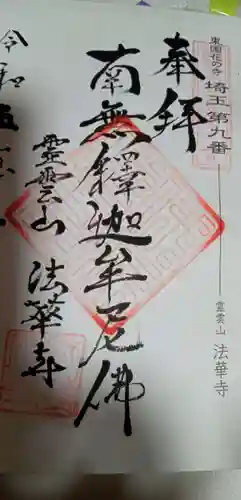 東国花の寺
埼玉第九番
霊雲山 法華寺
奉拝
南無釋迦牟尼佛
霊雲山 法華寺
令和五